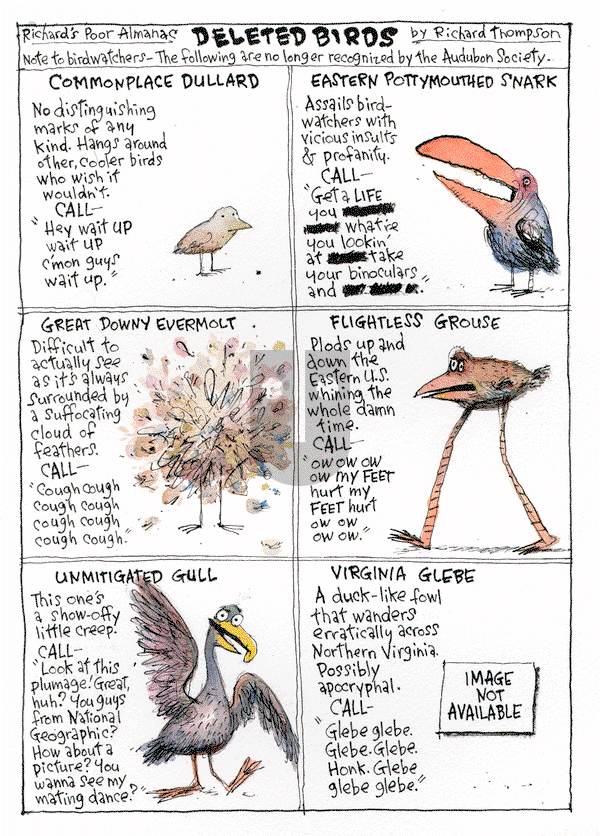 Richard's Poor Almanac DELETED BIRDS by Richard Thompson
Note to birdwatchers- The following are no longer recognized by the Audubon Society.
COMMONPLACE DULLARD
No distinguishing
marks of any
kind. Hangs around
other, cooler birds
who wish it
wouldn't.
CALL-
"Hey wait up
wait up
c'mon guys
wait up."
EASTERN POTTYMOUTHED SNARK
Assails bird-
watchers with
vicious insults
& profanity.
CALL-
"Get a LIFE
you
what're
you lookin'
at take
your binoculars
and ."
GREAT DOWNY EVERMOLT
Difficult to
actually see
as it's always
surrounded by
a suffocating
cloud of
feathers.
CALL-
"Cough cough
cough cough
cough cough
cough cough."
FLIGHTLESS GROUSE
Plods up and
down the
Eastern U.S.
whining the
whole damn
time.
CALL-
"ow ow ow
ow my FEET
hurt my
FEET hurt
ow ow
ow ow."
UNMITIGATED GULL
This one's
a show-offy
little creep.
CALL-
"Look at this
plumage! Great,
huh? You guys
from National
Geographic?
How about a
picture? You
wanna see my
mating dance?"
VIRGINIA GLEBE
A duck-like fowl
that wanders
erratically across
Northern Virginia.
Possibly
apocryphal.
CALL-
"Glebe glebe.
Glebe. Glebe.
Honk. Glebe
glebe glebe."
IMAGE
NOT
AVAILABLE